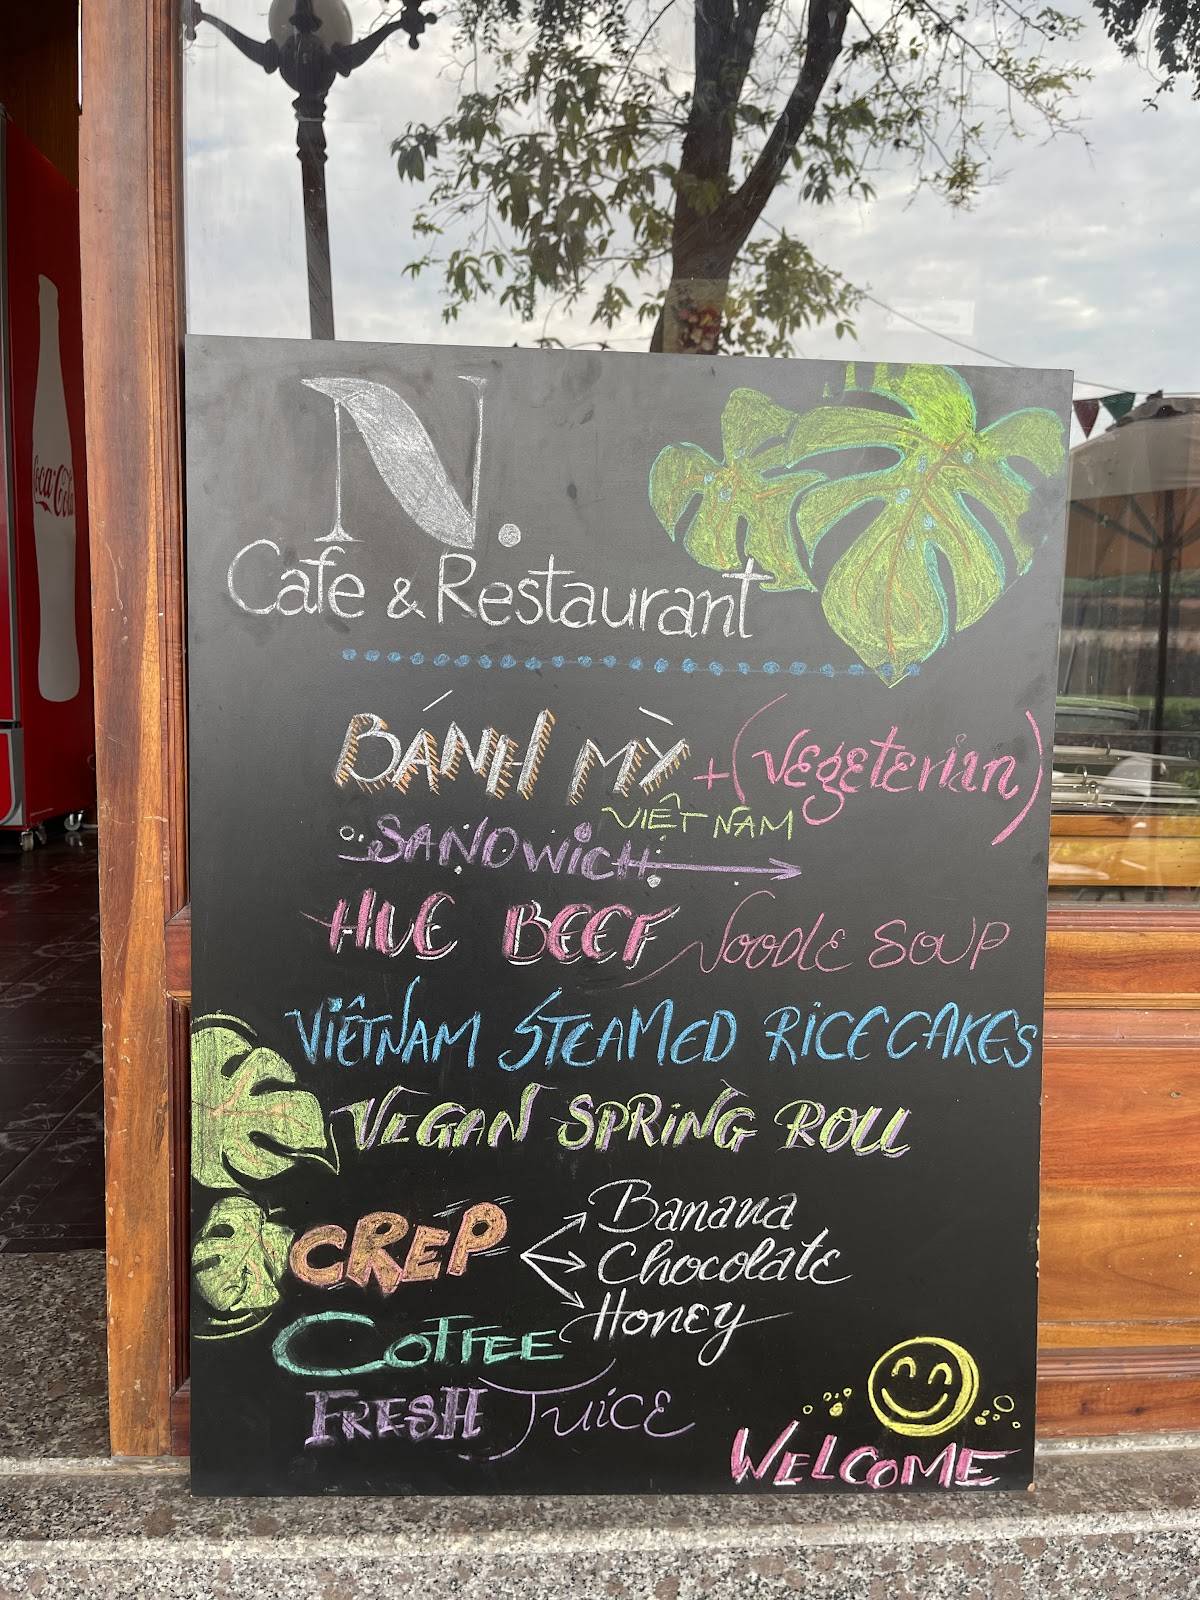 Coca-Cola
N.
Cafe & Restaurant
BÁNH MÌ + (VEgEtErian)
VIỆT NAM
SANDWICH
HUE BEEF NOODLE SOUP
VIỆTNAM STEAMED RICE CAKES
VEGAN SPRiNG ROLL
CREP
Banana
Chocolate
Honey
COFFEE
FRESH JuiCE
WELCOME